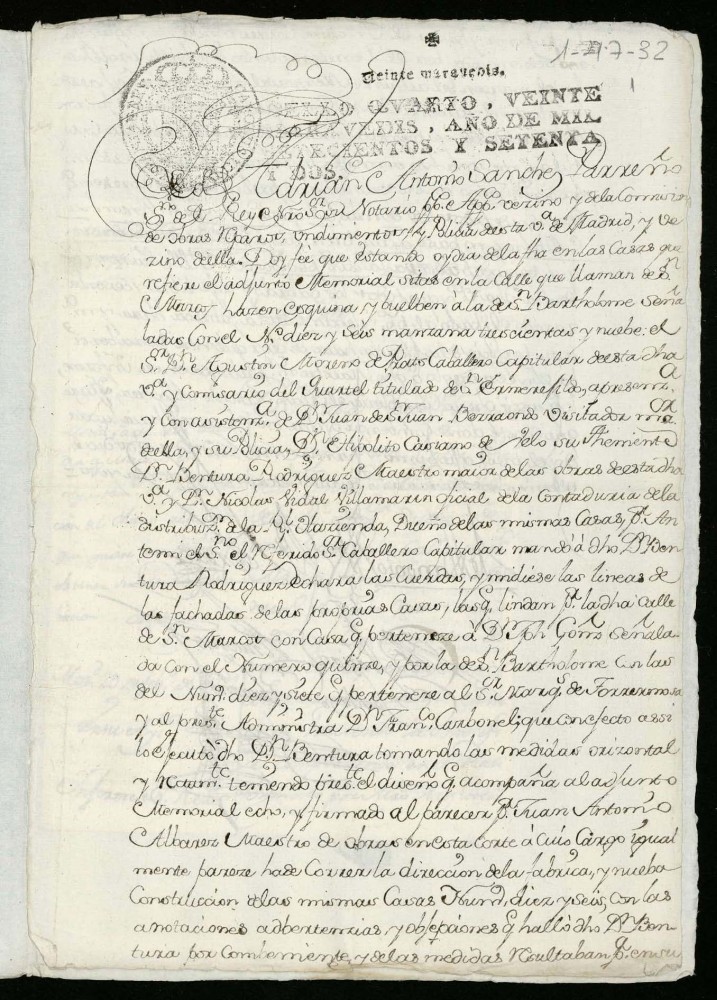 1-47-32
Veinte maravedis.
SELLO QVARTO, VEINTE
MARAVEDIS, AÑO DE MIL
SETECIENTOS Y SETENTA
Y DOS.
Adrian Antonio Sanchez Parreño
Ss.no de el Rey Nro Sor Notario ppco Appco vezino y de la Comision
de obras Reparos, y Policia de esta va de Madrid, y ve
zino de ella. Doy fee que estando oy dia de la fha en las Casas que
refiere el adjunto Memorial sitas en la Calle que llaman de Sn
Marcos hazen esquina, y buelben à la de Sn Bartholome seña
ladas con el No diez y seis manzana trescientas y nuebe. el
Sor Dn Agustin Moreno de Prado Caballero Capitular de esta dha
va y Comisario del Quartel titulado de Sn Ermenefildo, a presenza
y con asistenza de Dn Juan de Sn Juan Berraondo Visitador mor
de ella, y su Policia, Dn Hipolito Casiano de Velo su Theniente
Dn Bentura Rodriguez Maestro maior de las obras de esta dha
va y Dn Nicolas Vidal Villamarin oficial de la Contaduria de la
distribuzn de la Rl Hazienda, Dueño de las mismas Casas, pr An
temi el Ssno el Referido Sor Caballero Capitular mandò à dho Dn Ben
tura Rodriguez echara las Cuerdas, y midiese las lineas de
las fachadas de las propias Casas, las q lindan pr la dha calle
de Sn Marcos con Casa q perteneze à Dn Jph Gomz señala
da con el Numero quinze, y por la de Sn Bartholome con las
del Numo diez y siete q perteneze al Sor Marqs de Torrehermosa
y al preste Administra Dn Franco Carbonel; que con efecto assi
lo ejecutò dho Dn Bentura tomando las medidas orizontal
y Rectamte teniendo preste el diseño q acompaña al adjunto
Memorial echo, y firmado al parecer pr Juan Antonio
Albarez Maestro de obras en esta corte à cuio Cargo igual
mente pareze ha de Correr la direccion de la fabrica, y nueba
Construccion de las mismas Casas Numo diez y seis, con las
anotaciones adbertenzias, y obsepciones q hallò dho Dn Ben-
tura por combeniente, y de las medidas Resultaban pr en su